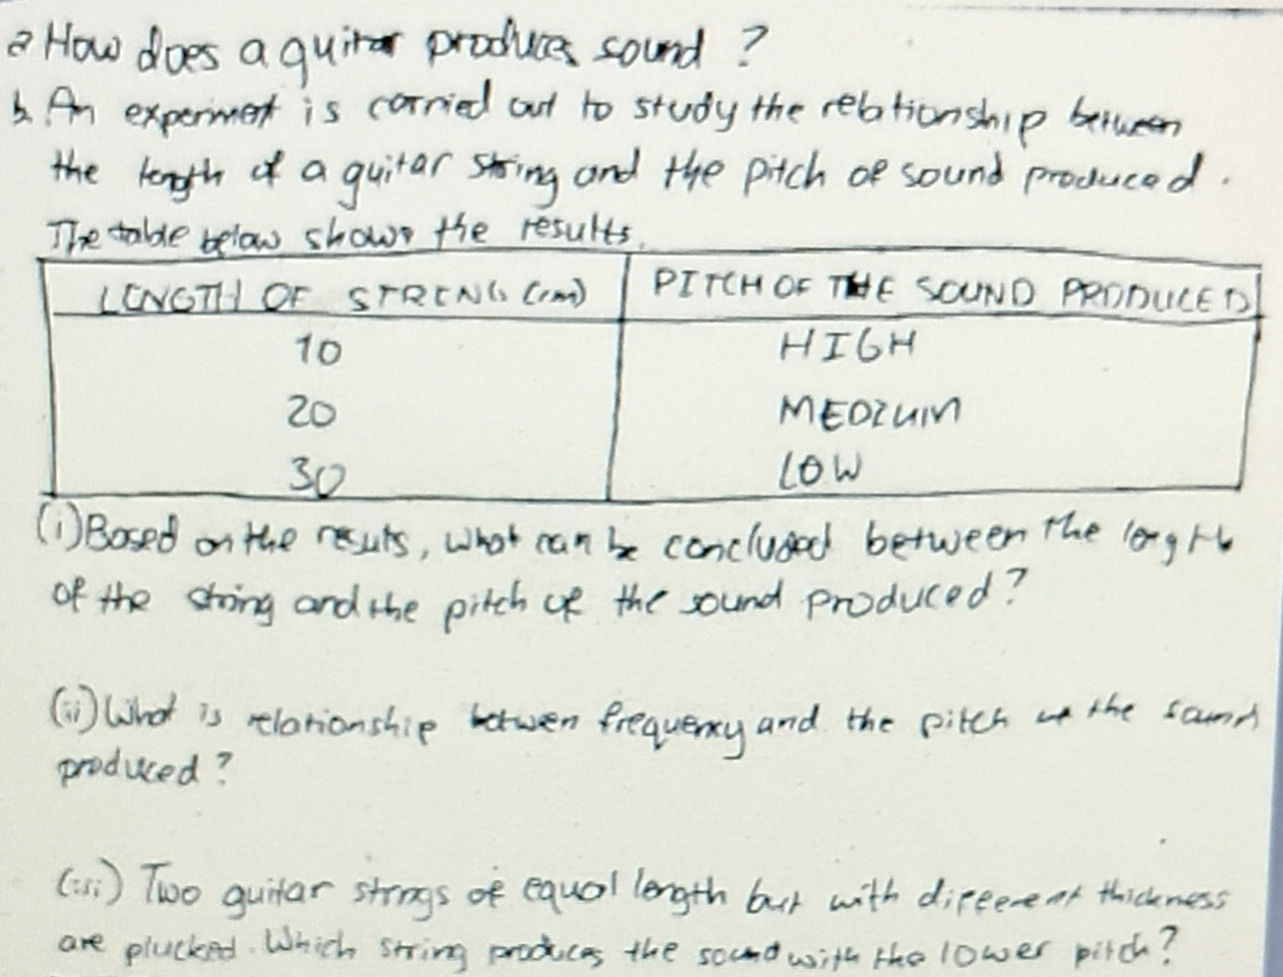 a How does a guitar produces sound ?
b. An experiment is carried out to study the relationship between
the length of a guitar string and the pitch of sound produced.
The table below shows the results.
LENGTH OF STRING (cm) PITCH OF THE SOUND PRODUCED
10 HIGH
20 MEDIUM
30 LOW
(i) Based on the results, what can be concluded between the length
of the string and the pitch of the sound produced?
(ii) What is relationship between frequency and the pitch of the sound
produced ?
(iii) Two guitar strings of equal length but with different thickness
are plucked. Which string produces the sound with the lower pitch?